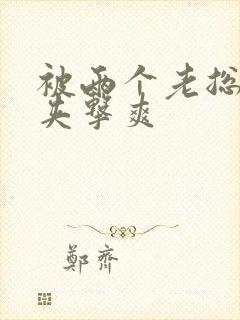 被两个老总
夹擊爽
鄭齊